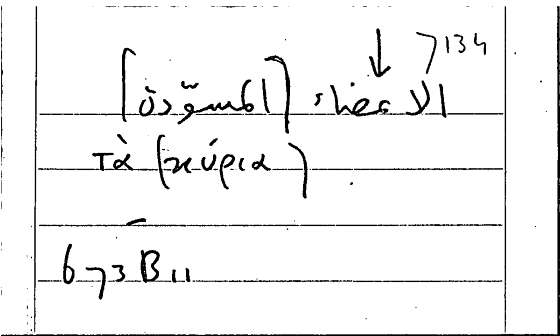 134
الاعضاء [المسوّدة]
τὰ (κύρια)
673 B 11